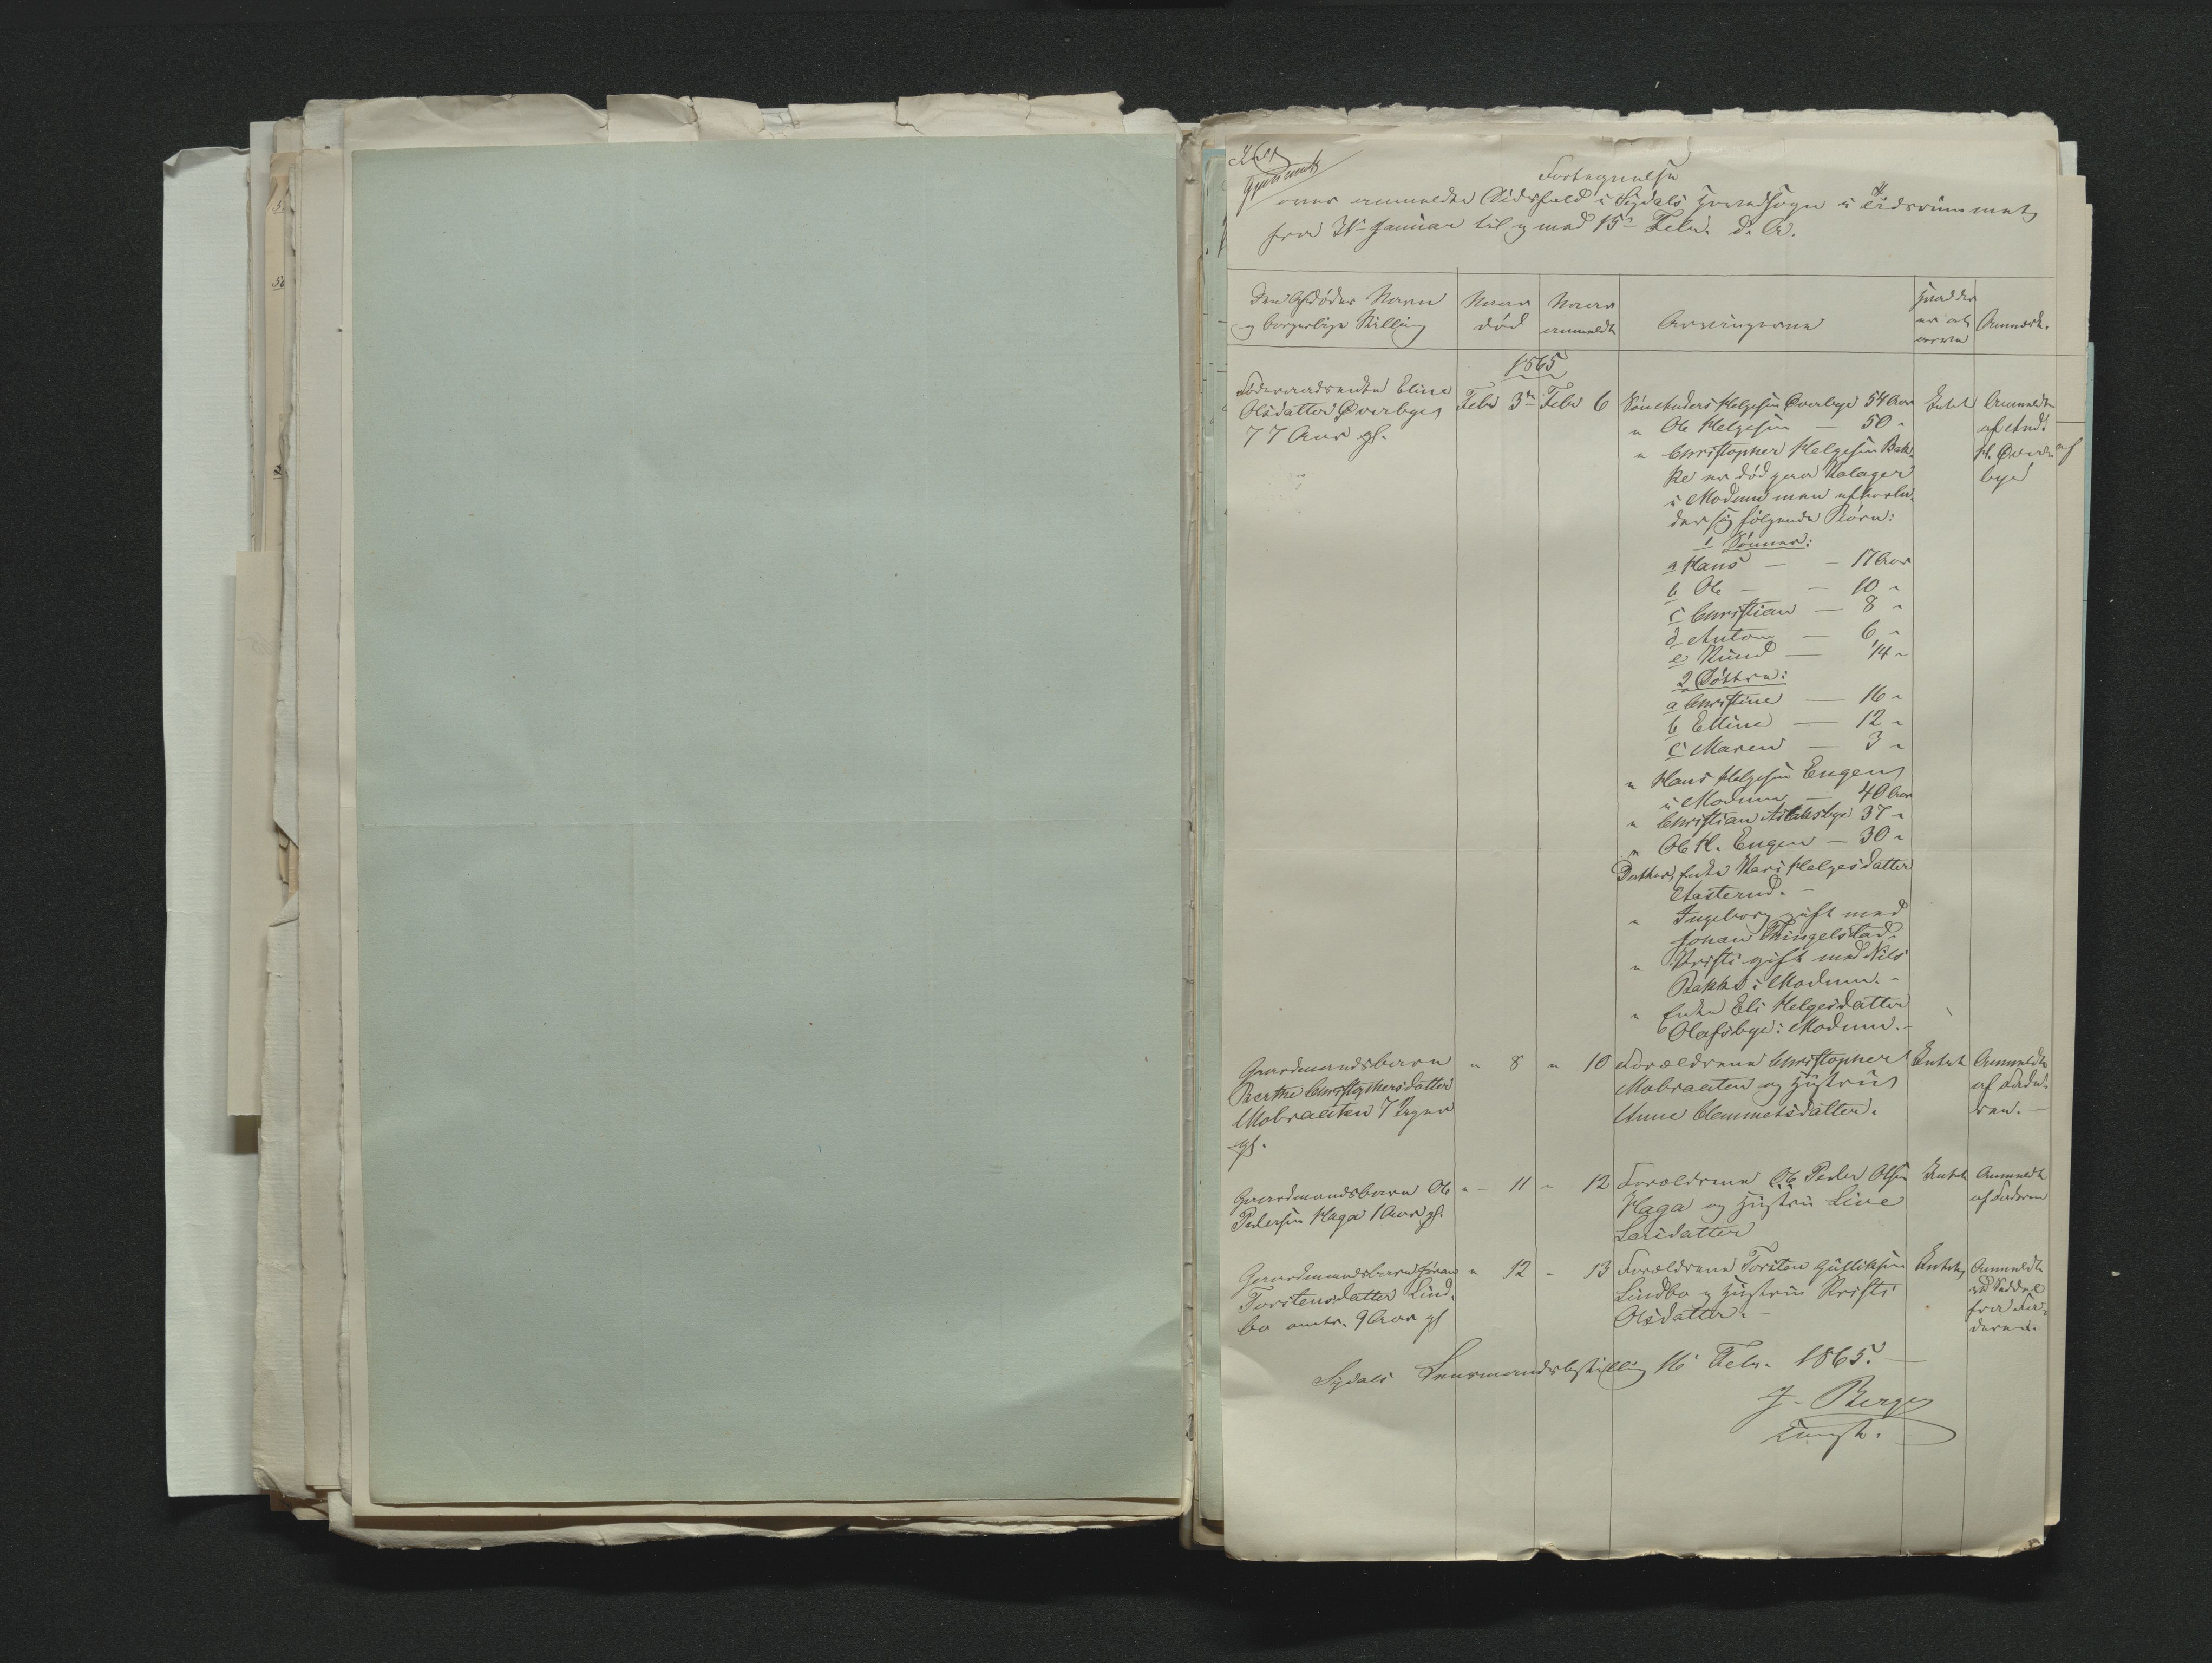 Fortegnelse
over anmeldte Dødsfald i Sigdals Hovedsogn i Tidsrummet
fra 31te Januar til og med 15de Febr. d. A.
Den Afdødes Navn
og borgerlige Stilling
Naar
død
Naar
anmeldt
Arvingerne
Hvad der
er at
arve
Anmærk.
1865
Føderaadsenke Eline
Olsdatter Overbye
77 Aar gl.
Febr 3die
Febr 6
Søn Anders Helgesen Overbye 54 Aar
" Ole Helgesen — 50 "
" Christopher Helgesen Bak-
ke er død paa
i Modum men efterla-
der sig følgende Børn:
1 Sønner:
a Hans — — 17 Aar
b Ole — — 10 "
c Christian — 8 "
d Anton — 6 "
e Knud — 14 "
2 Døttre:
a Christine — 16 "
b Elline — 12 "
c Maren — 3 "
" Hans Helgesen Engen
i Modum — 40 Aar
" Christian 37 "
" Ole H. Engen — 30 "
Datter, Enke Kari Helgesdatter
" Ingeborg gift med
Johan Tingelstad
" Kristi gift med Nils
Bakke i Modum. -
" Enke Eli Helgesdatter
Olafsbye i Modum. -
Intet
Anmeldt
af And.
H. Over-
bye
Gaardmandsbarn
Berthe Christophersdatter
Mobraaten 7 Dager
gl.
" 8
" 10
Forældrene Christopher
Mobraaten og Hustru
Anne Clemmetsdatter.
Intet
Anmeldt
af Fade-
ren. —
Gaardmandsbarn Ole
Pedersen Haga 1 Aar gl.
" 11
" 12
Forældrene Ole Peder Olsen
Haga og Hustru Live
Larsdatter
Intet
Anmeldt
af Faderen
Gaardmandsbarn Jøran
Torstensdatter Lind-
bo omtr. 9 Aar gl
" 12
" 13
Forældrene Torsten Gulliksen
Lindbo og Hustru Kristi
Olsdatter. -
Intet
Anmeldt
ved Seddel
fra Fa-
deren.
Sigdals Lensmandsbestilling 16 Febr. 1865. —
J. Berge